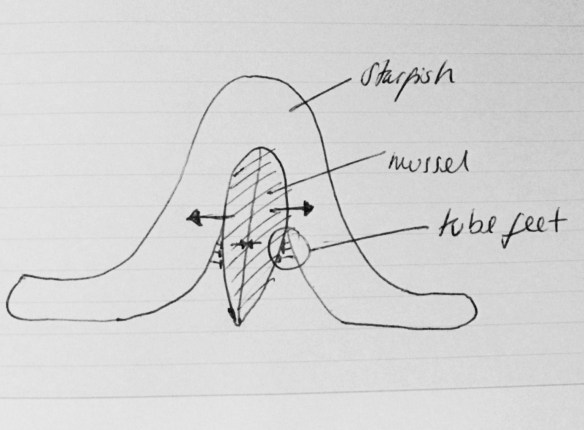 starfish
mussel
tube feet